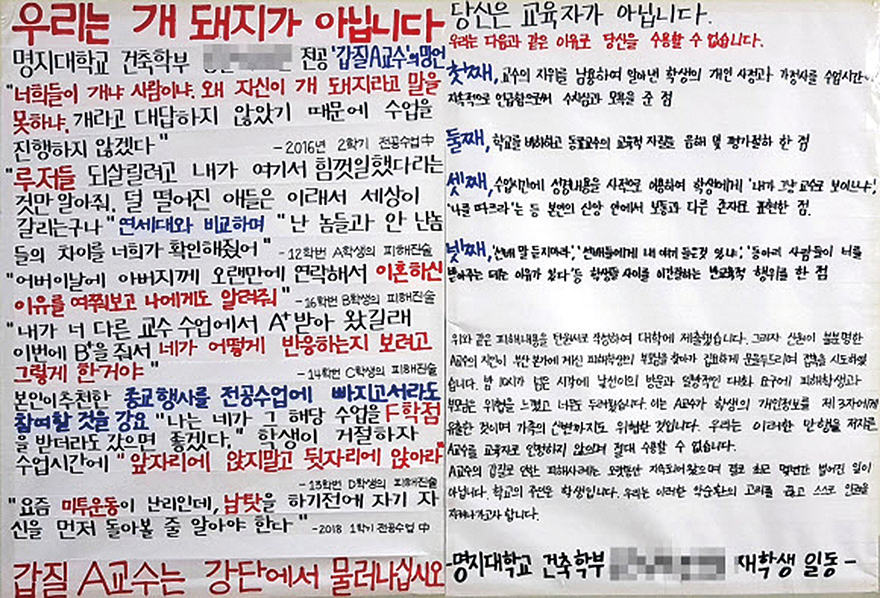 우리는 개 돼지가 아닙니다
명지대학교 건축학부 전공 '갑질A교수'의 망언
"너희들이 개냐 사람이냐. 왜 자신이 개 돼지라고 말을
못하냐. 개라고 대답하지 않았기 때문에 수업을
진행하지 않겠다"
-2016년 2학기 전공수업中
"루저들 되살릴려고 내가 여기서 힘껏일했다라는
것만 알아줘. 덜 떨어진 애들은 이래서 세상이
갈리는구나" 연세대와 비교하며 "난 놈들과 안 난놈
들의 차이를 너희가 확인해줬어" -12학번 A학생의 피해진술
"어버이날에 아버지께 오랜만에 연락해서 이혼하신
이유를 여쭤보고 나에게도 알려줘" -16학번 B학생의 피해진술
"내가 너 다른 교수 수업에서 A+받아 왔길래
이번에 B+을 줘서 네가 어떻게 반응하는지 보려고
그렇게 한거야" -14학번 C학생의 피해진술
본인이 추천한 종교행사를 전공수업에 빠지고서라도
참여할 것을 강요 "나는 네가 그 해당 수업을 F학점
을 받더라도 갔으면 좋겠다." 학생이 거절하자
수업시간에 "앞자리에 앉지말고 뒷자리에 앉아라"
-13학번 D학생의 피해진술
"요즘 미투운동이 난리인데, 남탓을 하기전에 자기 자
신을 먼저 돌아볼 줄 알아야 한다" -2018 1학기 전공수업 中
갑질 A교수는 강단에서 물러나십시오
당신은 교육자가 아닙니다.
우리는 다음과 같은 이유로 당신을 수용할 수 없습니다.
첫째, 교수의 지위를 남용하여 알아낸 학생의 개인 사정과 가정사를 수업시간에
지속적으로 언급함으로써 수치심과 모욕을 준 점
둘째, 학교를 비하하고 동료교수의 교육적 자질을 음해 및 평가절하 한 점
셋째, 수업시간에 성경내용을 사적으로 이용하여 학생에게 '내가 그냥 교수로 보이느냐',
'나를 따르라'는 등 본인의 신앙 안에서 보통과 다른 존재로 표현한 점.
넷째, '선배 말 듣지마라', '선배들에게 내 얘기 들은것 있냐', '동아리 사람들이 너를
받아주는 데는 이유가 있다' 등 학생들 사이를 이간질하는 비교육적 행위를 한 점
위와 같은 피해내용을 탄원서로 작성하여 대학에 제출했습니다. 그러자 신원이 불분명한
A교수의 지인이 부산 본가에 계신 피해학생의 부모님을 찾아가 집요하게 문을두드리며 접촉을 시도하였
습니다. 밤 10시가 넘은 시각에 낯선이의 방문과 일방적인 대화 요구에 피해학생과
부모님은 위협을 느꼈고 너무도 두려웠습니다. 이는 A교수가 학생의 개인정보를 제 3자에게
유출한 것이며 가족의 신변까지도 위협한 것입니다. 우리는 이러한 만행을 저지른
A교수를 교육자로 인정하지 않으며 절대 수용할 수 없습니다.
A교수의 갑질로 인한 피해사례는 오랫동안 지속되어 왔으며 결코 최근 몇년간 벌어진 일이
아닙니다. 학교의 주인은 학생입니다. 우리는 이러한 악순환의 고리를 끊고 스스로 인권을
지켜나가고자 합니다.
-명지대학교 건축학부 재학생 일동-